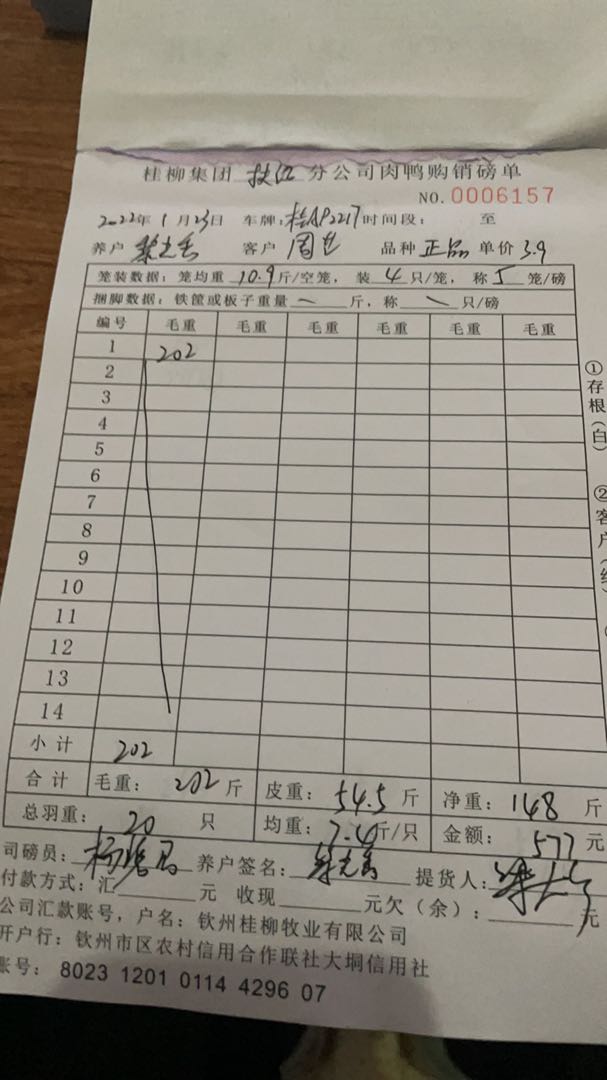 桂柳集团 分公司肉鸭购销磅单
NO.0006157
2022年1月23日 车牌:桂AP2217 时间段: 至
养户 客户 周 品种 正品 单价 3.9
笼装数据:笼均重 10.9 斤/空笼,装 4 只/笼,称 5 笼/磅
捆脚数据:铁筐或板子重量 斤,称 只/磅
编号 毛重 毛重 毛重 毛重 毛重 毛重
1 202
2
3
4
5
6
7
8
9
10
11
12
13
14
小计 202
合计 毛重: 202 斤 皮重: 54.5 斤 净重: 148 斤
总羽重: 20 只 均重: 7.4 斤/只 金额: 577 元
司磅员: 杨 养户签名: 提货人:
付款方式:汇 元 收现 元欠(余): 元
公司汇款账号,户名:钦州桂柳牧业有限公司
开户行:钦州市区农村信用合作联社大垌信用社
账号: 8023 1201 0114 4296 07
①存根(白)
②客户(红)